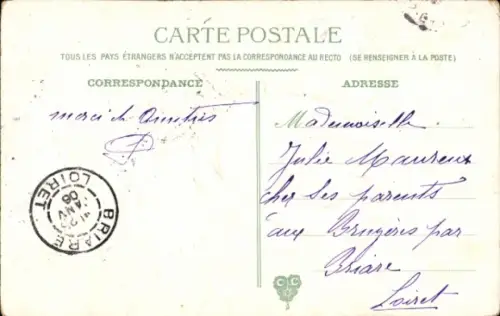 CARTE POSTALE
TOUS LES PAYS ÉTRANGERS N'ACCEPTENT PAS LA CORRESPONDANCE AU RECTO (SE RENSEIGNER À LA POSTE)
CORRESPONDANCE
merci de
ADRESSE
Mademoiselle
Julie
chez ses parents
aux Bruyères par
Briare
Loiret
BRIARE
LOIRET
JANV
06
C C